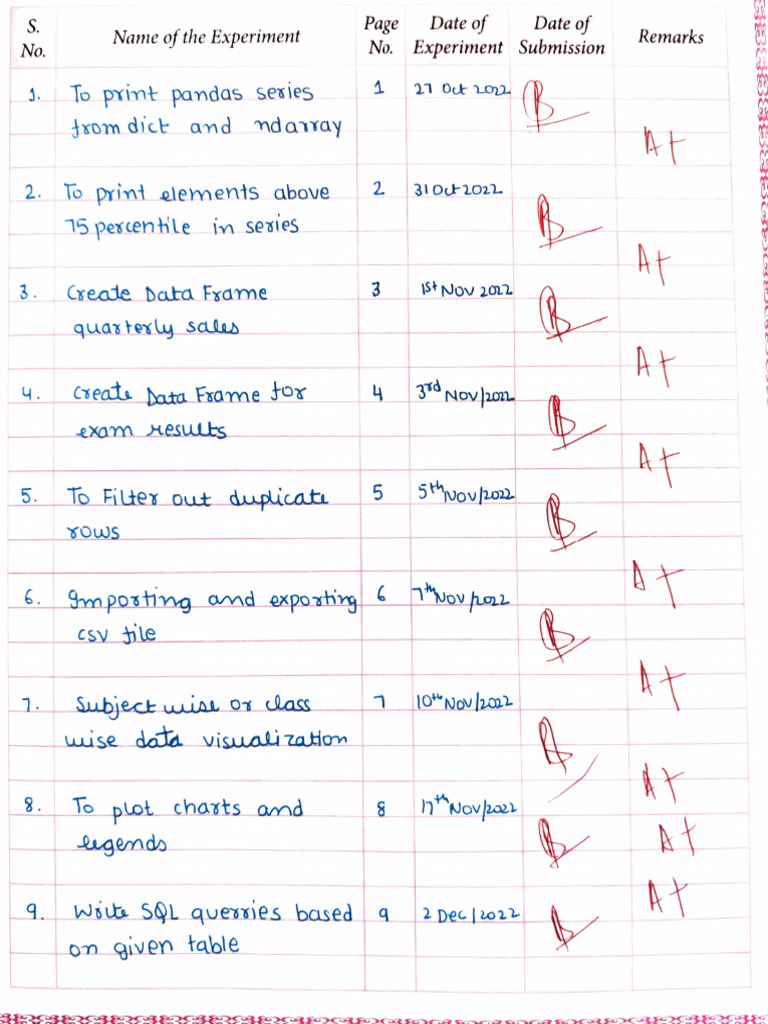 S. No. Name of the Experiment Page No. Date of Experiment Date of Submission Remarks
1. To print pandas series 1 27 Oct 2022
from dict and ndarray
A+
2. To print elements above 2 31 Oct 2022
75 percentile in series
A+
3. Create Data Frame 3 1st Nov 2022
quarterly sales
A+
4. Create Data Frame for 4 3rd Nov/2022
exam results
A+
5. To Filter out duplicate 5 5th Nov/2022
rows
A+
6. Importing and exporting 6 7th Nov/2022
csv file
A+
7. Subject wise or class 7 10th Nov/2022
wise data visualization
A+
8. To plot charts and 8 17th Nov/2022
legends A+
A+
9. Write SQL querries based 9 2 Dec/2022
on given table